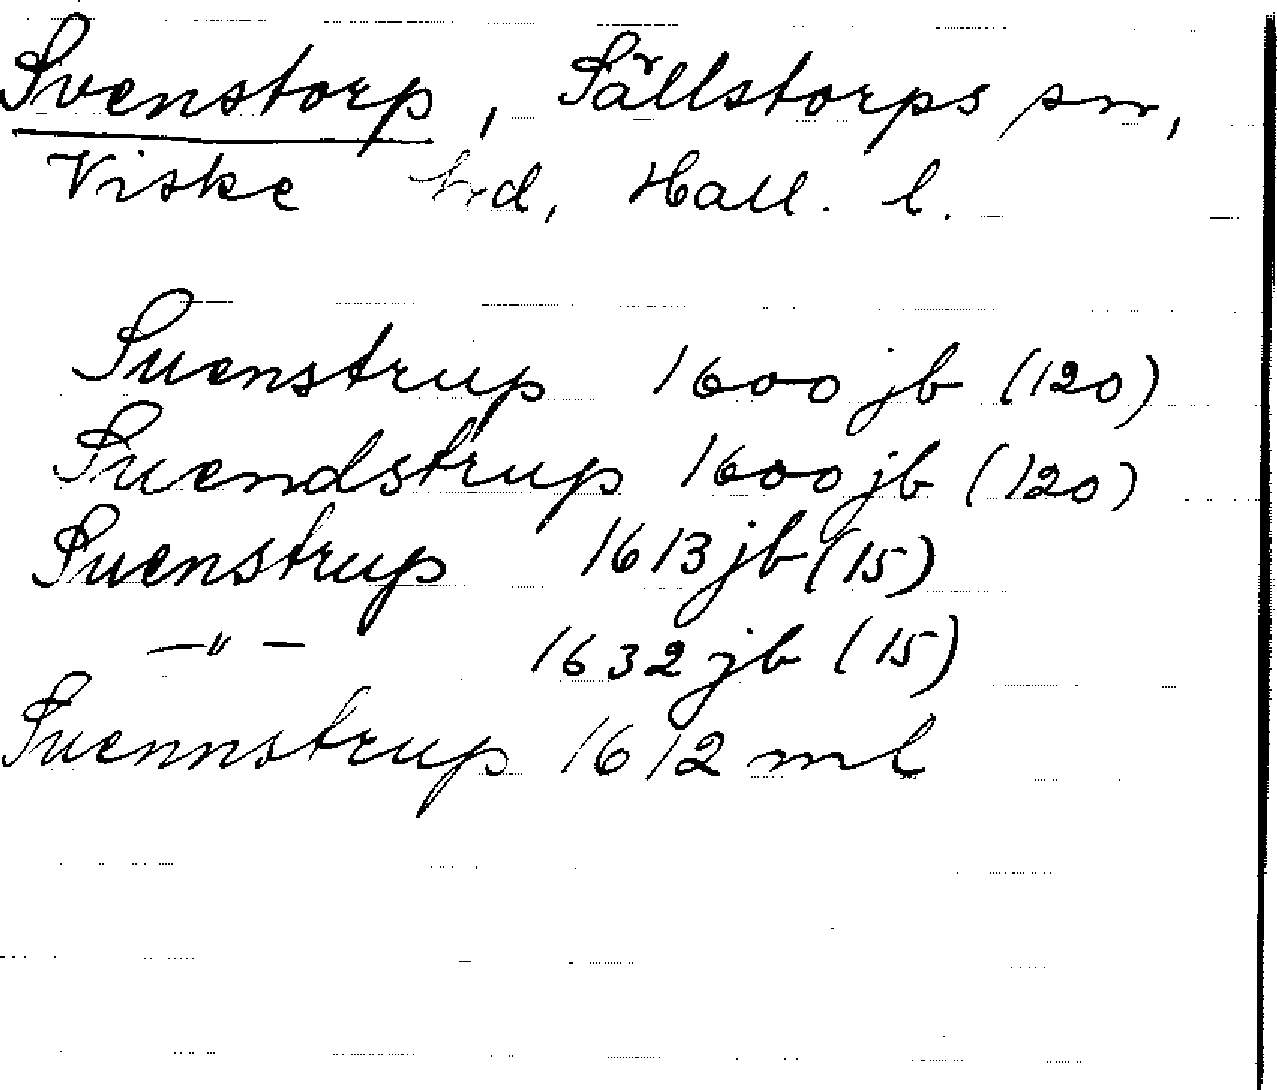 Svenstorp, Sällstorps sn,
Viske hrd, Hall. l.
Suenstrup 1600 jb (120)
Suendstrup 1600 jb (120)
Suenstrup 1613 jb (15)
—"— 1632 jb (15)
Suennstrup 1612 ml